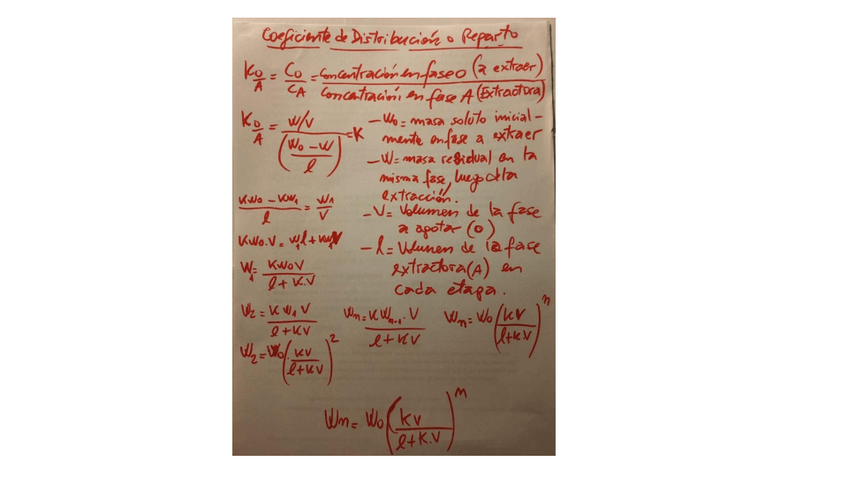 Coeficiente de Distribución o Reparto
K O/A = CO/CA = Concentración en fase O (a extraer) / Concentración en fase A (Extractora)
K O/A = W/V / (W0 - W / l) = K
- W0 = masa soluto inicial-
mente en fase a extraer
- W = masa residual en la
misma fase, luego de la
extracción.
- V = Volumen de la fase
a agotar (O)
- l = Volumen de la fase
extractora (A) en
cada etapa.
KW0 - KW1 / l = W1 / V
KW0.V = W1l + KW1V
W1 = KW0V / l + K.V
W2 = KW1V / l + KV
Wn = KWn-1.V / l + KV
Wn = W0 (KV / l + KV)^n
W2 = W0 (KV / l + KV)^2
Wn = W0 (KV / l + K.V)^n